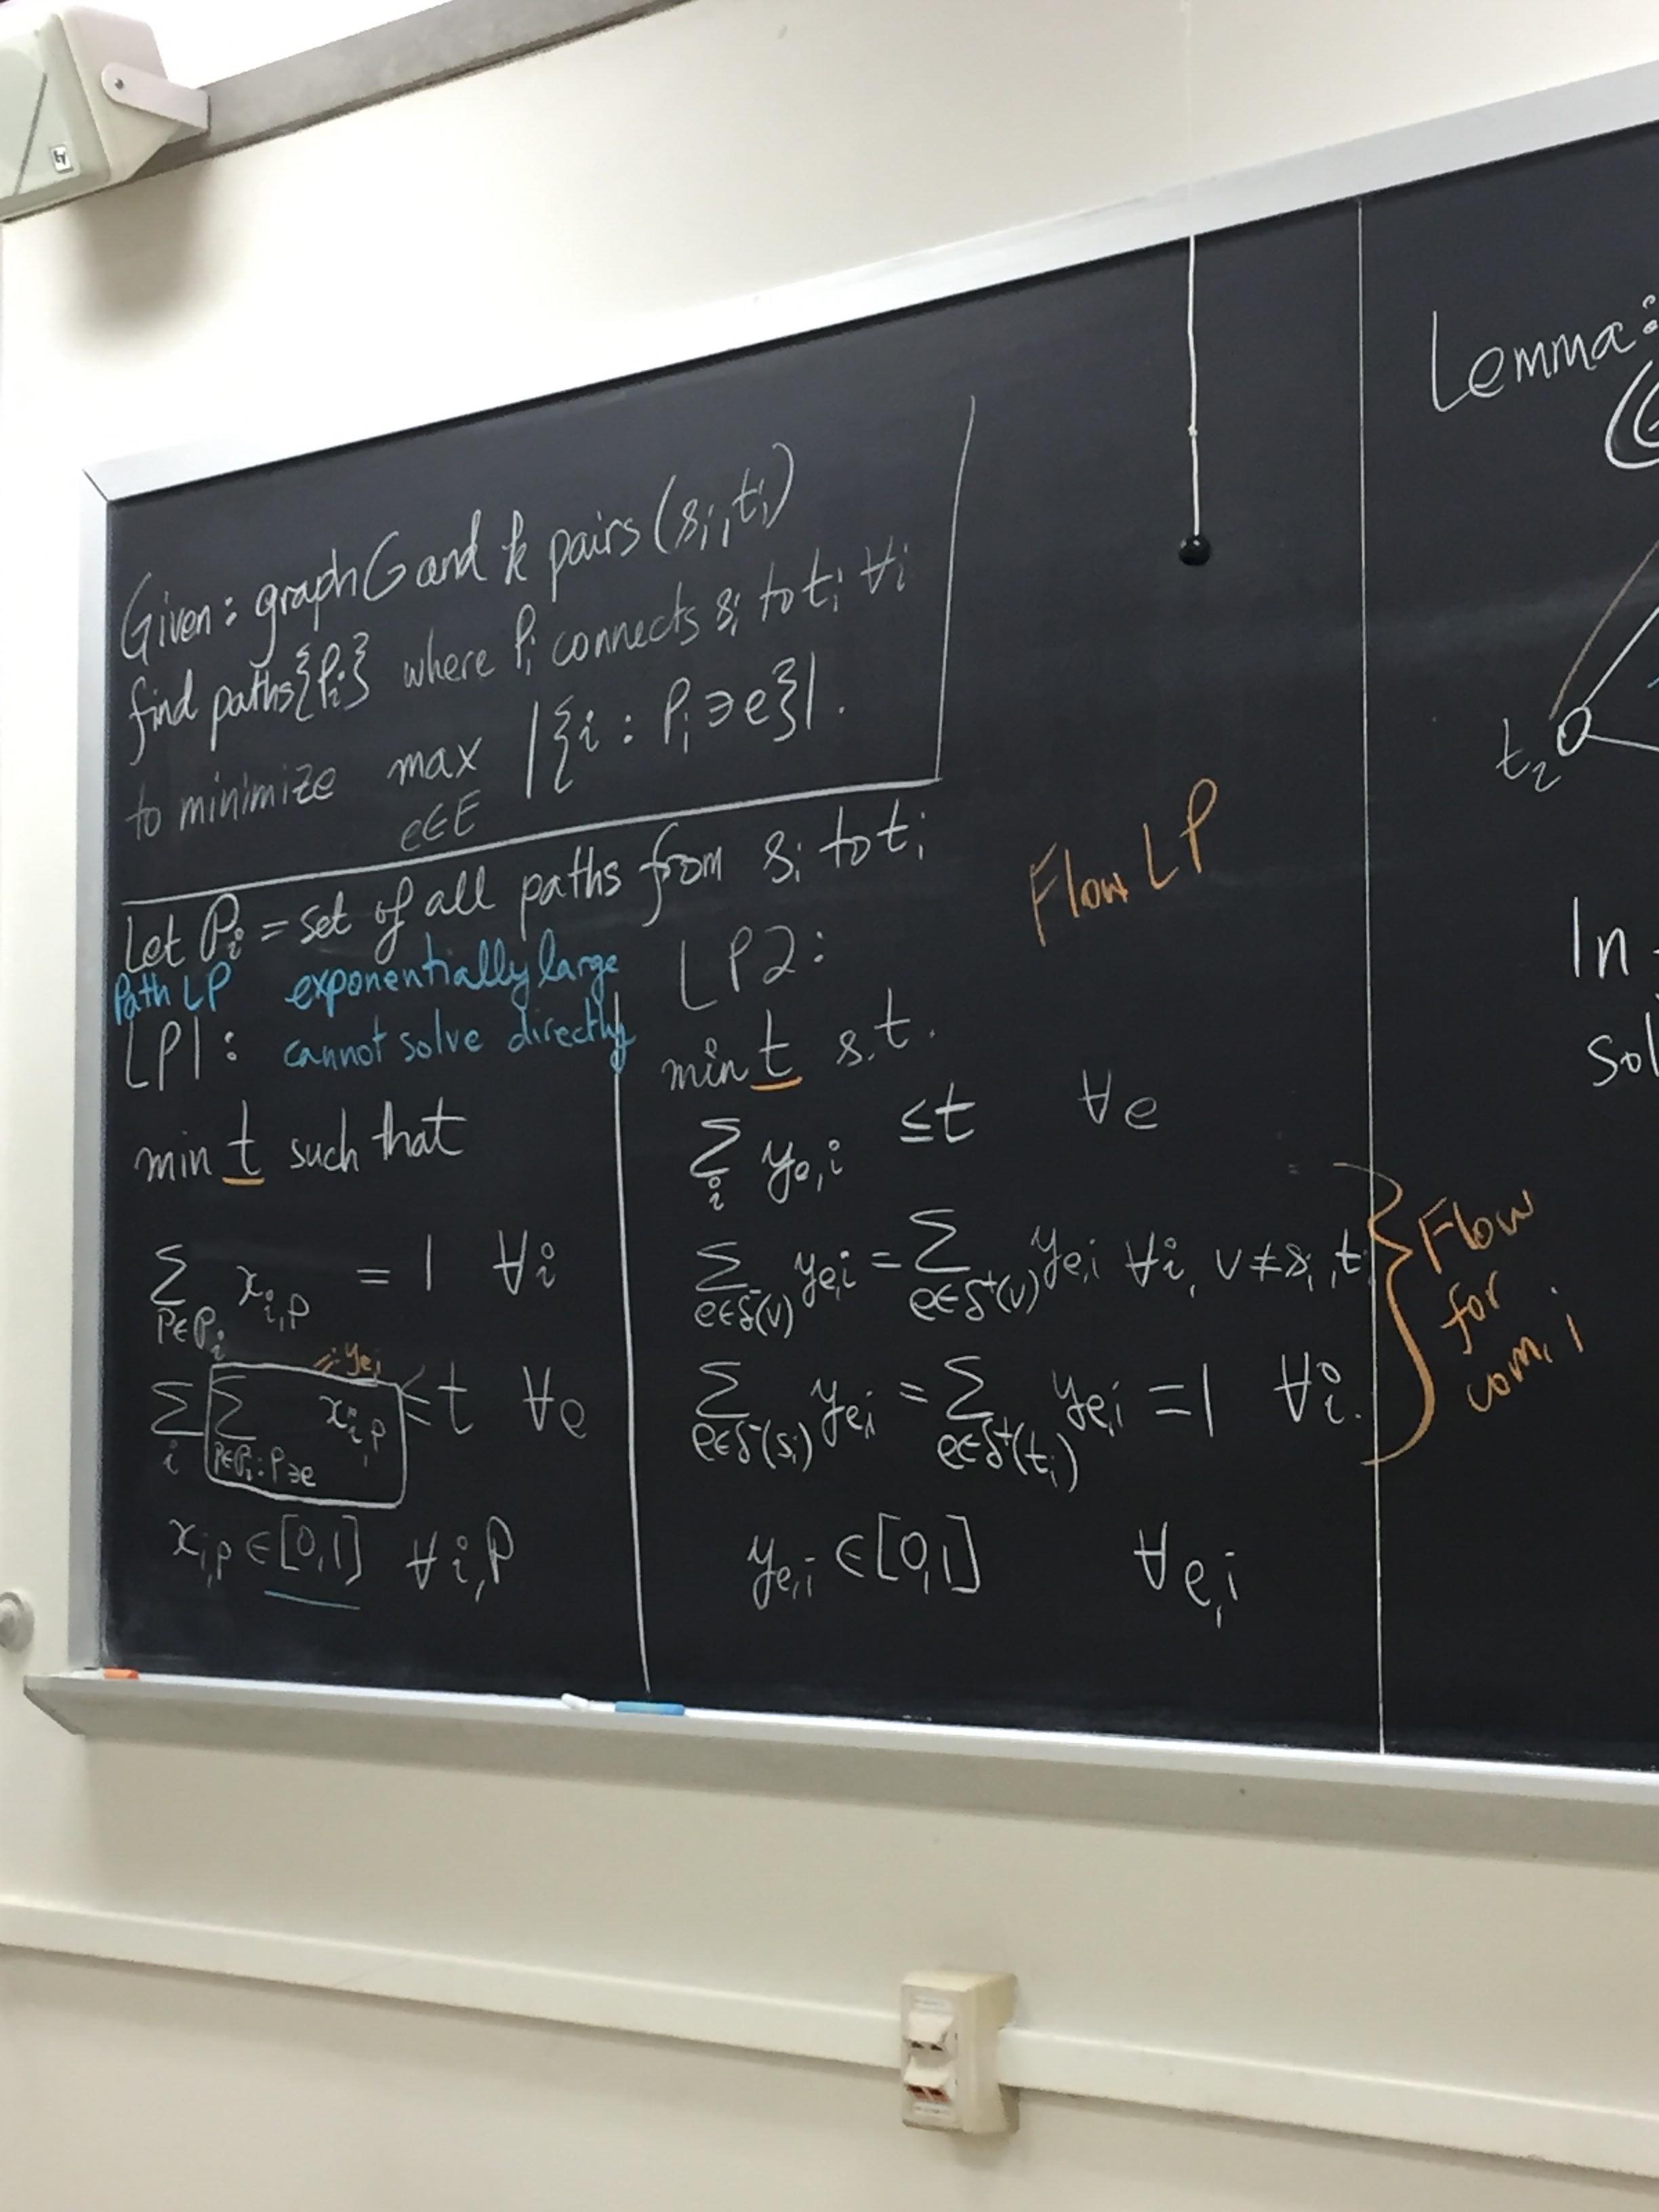 Given: graph G and k pairs (sᵢ, tᵢ)
find paths {Pᵢ} where Pᵢ connects sᵢ to tᵢ ∀i
to minimize max |{i : Pᵢ ∋ e}|.
e∈E
Let 𝒫ᵢ = set of all paths from sᵢ to tᵢ
Path LP exponentially large
LP1: cannot solve directly
min t such that
∑ x_{i,P} = 1 ∀i
P∈𝒫ᵢ
=: y_{e,i}
∑ ∑ x_{i,P} ≤ t ∀e
i P∈𝒫ᵢ: P∋e
x_{i,P} ∈ [0,1] ∀i,P
Flow LP
LP2:
min t s.t.
∑ y_{e,i} ≤ t ∀e
i
∑ y_{e,i} = ∑ y_{e,i} ∀i, v≠sᵢ, tᵢ
e∈δ⁻(v) e∈δ⁺(v)
∑ y_{e,i} = ∑ y_{e,i} = 1 ∀i.
e∈δ⁻(sᵢ) e∈δ⁺(tᵢ)
y_{e,i} ∈ [0,1] ∀e,i
Flow
for
com. i
Lemma:
t₂
In